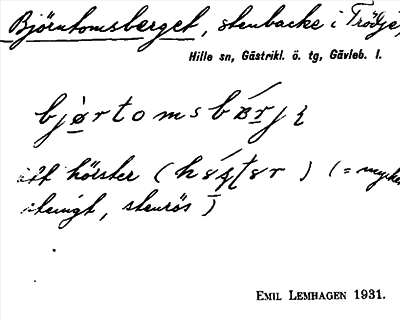 Björntomsberget, stenbacke i Trödje,
Hille sn, Gästrikl. ö. tg, Gävleb. l.
bjørtomsbærjɩ
ett hölster ( ) (= mycket
stenigt, stenrös )
EMIL LEMHAGEN 1931.